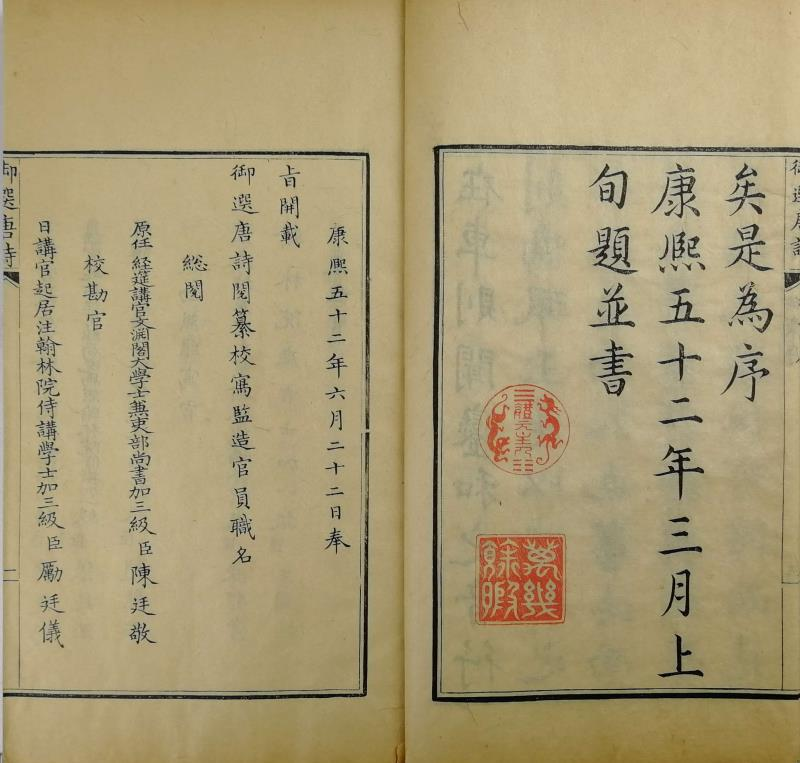 矣是為序
康熙五十二年三月上
旬題並書
體元主人
萬幾餘暇
康熙五十二年六月二十二日奉
旨開載
御選唐詩閱纂校寫監造官員職名
總閱
原任經筵講官文淵閣大學士兼吏部尚書加三級臣陳廷敬
校勘官
日講官起居注翰林院侍講學士加三級臣勵廷儀
御選唐詩
一